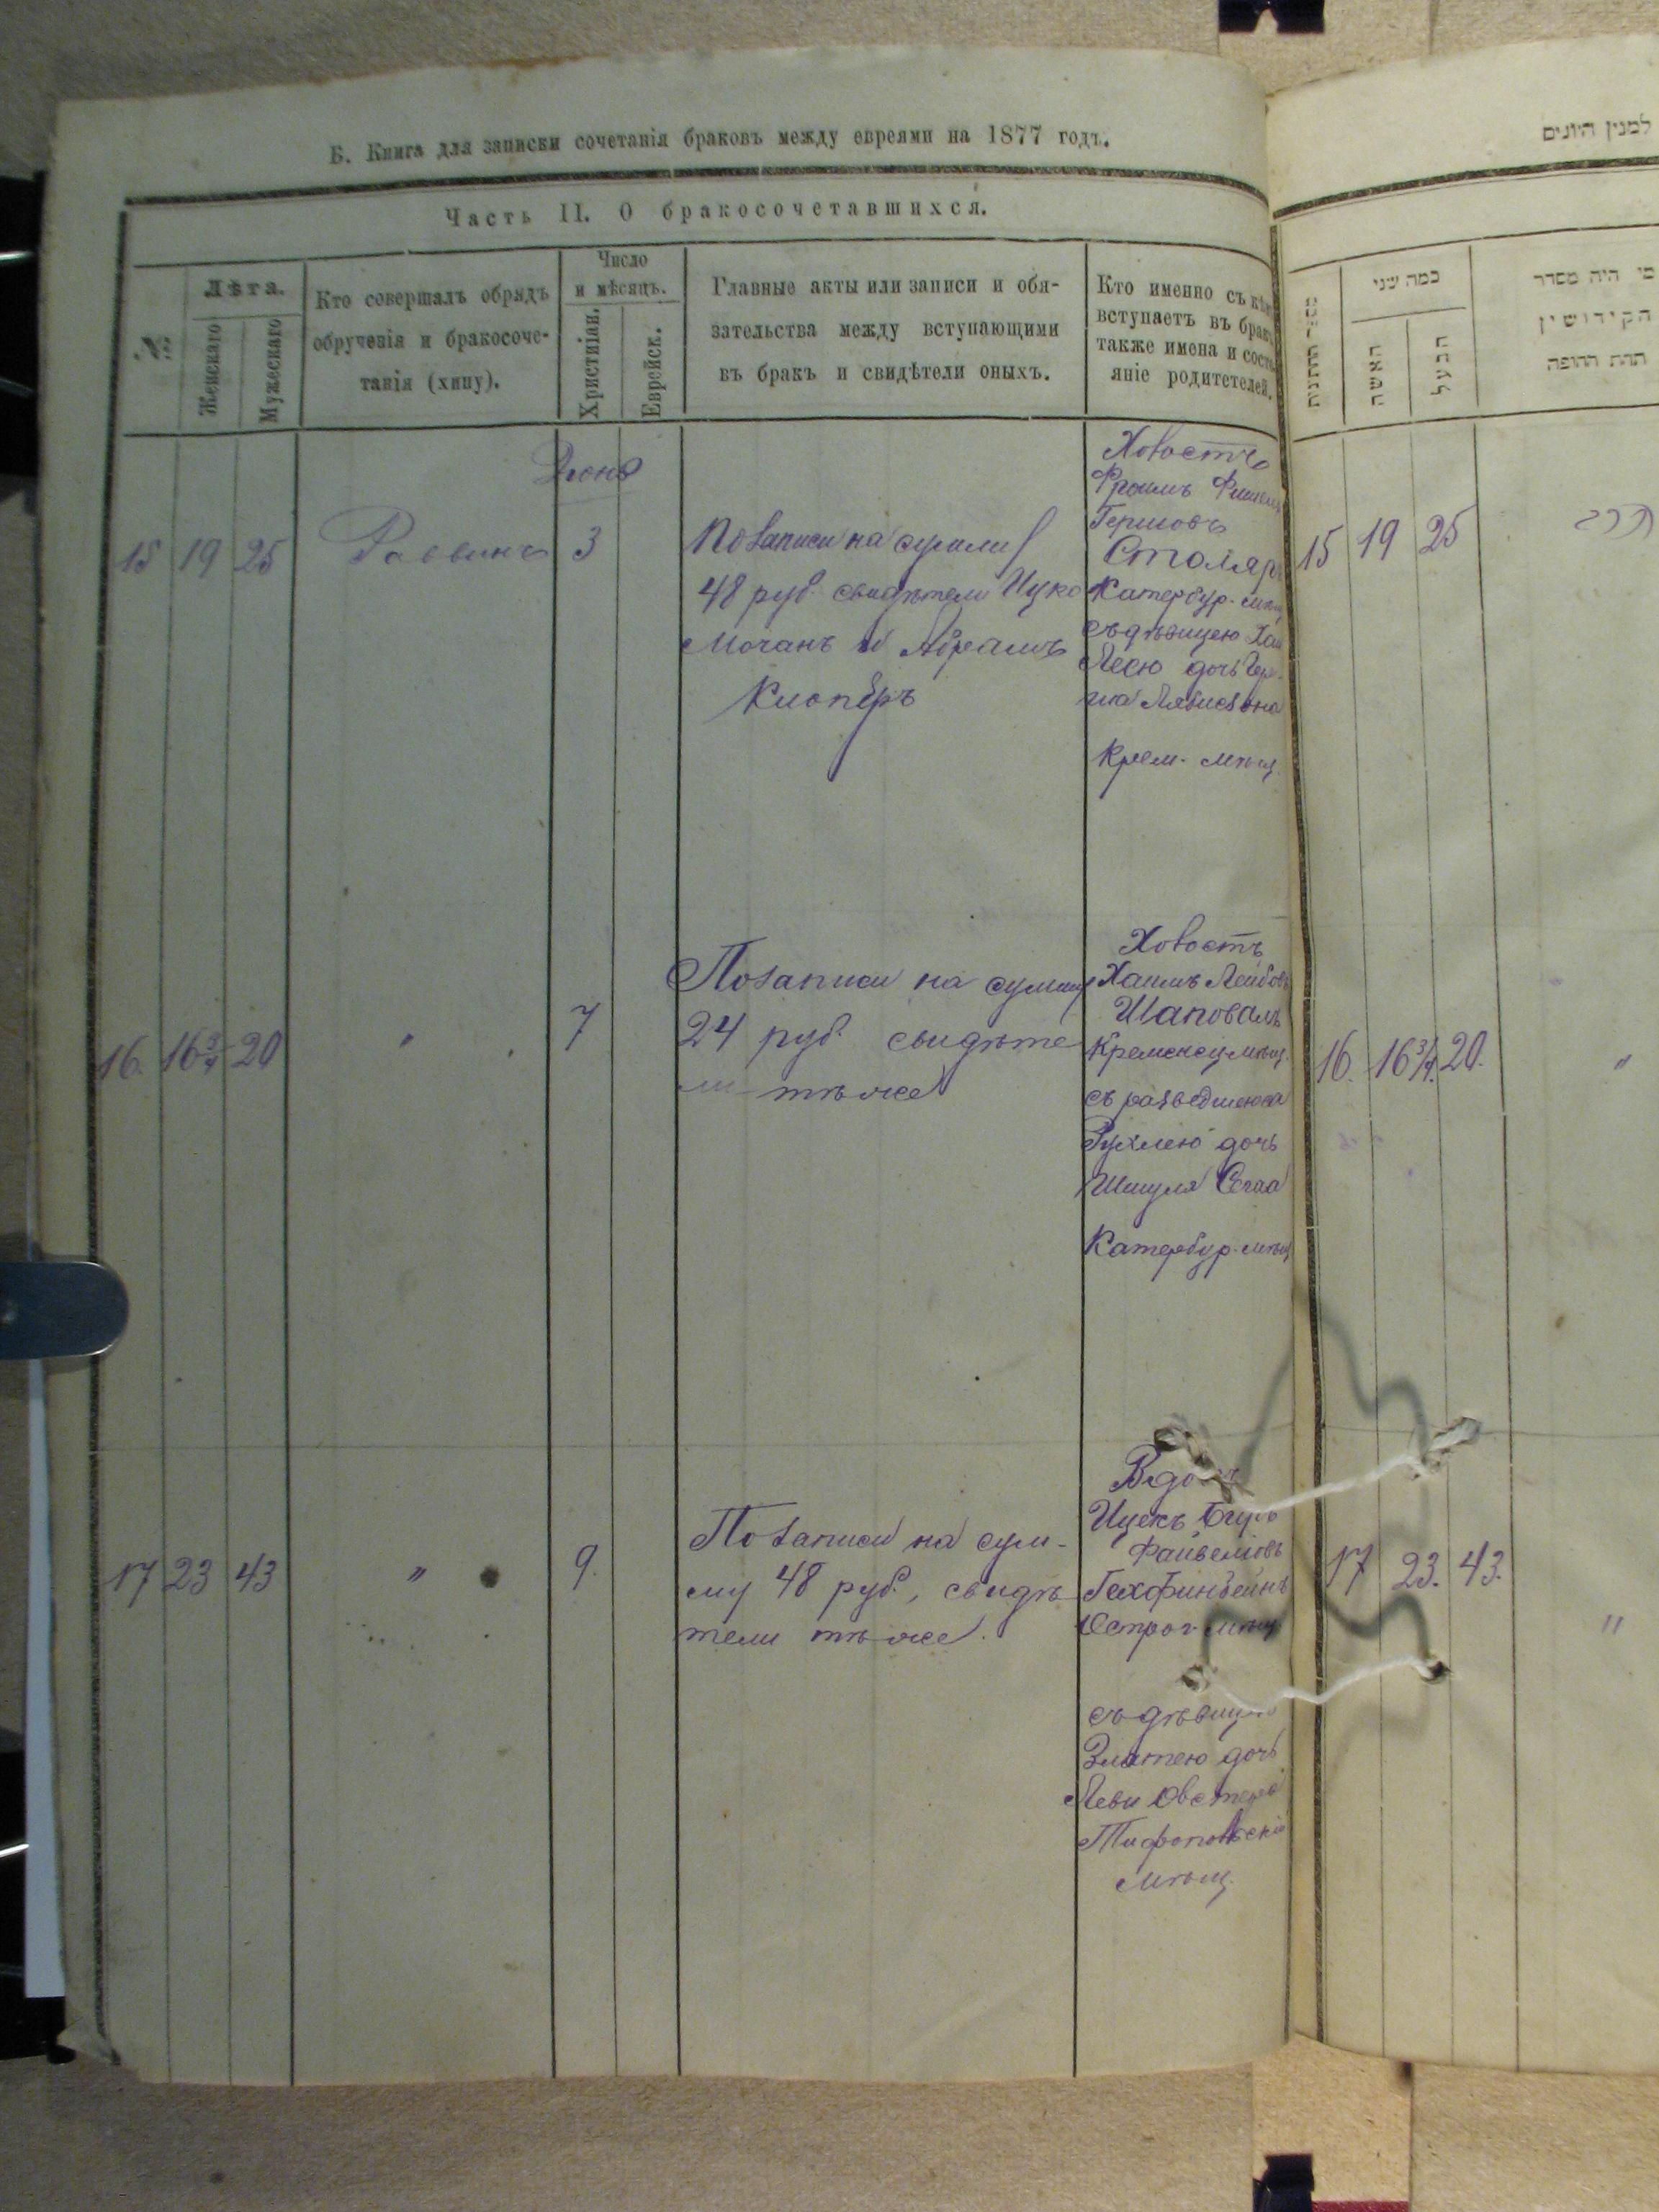 Б. Книга для записки сочетанія браковъ между евреями на 1877 годъ.
Часть II. О бракосочетавшихся.
№
Лѣта.
Женскаго
Мужескаго
Кто совершалъ обрядъ
обрученія и бракосоче-
танія (хипу).
Число
и мѣсяцъ.
Христиіан.
Еврейск.
Главные акты или записи и обя-
зательства между вступающими
въ бракъ и свидѣтели оныхъ.
Кто именно съ кѣмъ
вступаетъ въ бракъ
также имена и состо-
яніе родитетелей.
15 19 25
Раввинъ
3
По записи на сумму
48 руб. свидѣтели Ицко
Мочанъ и Абрамъ
Клоперъ
Холостъ
Фроимъ
Гершовъ
Столяръ
Катербур. мѣщ
съ дѣвицею
Лесю дочь Гер-
шка
Крем. мѣщ.
16. 16 3/4 20
"
7
По записи на сумму
24 руб. свидѣте
ли тѣ же
Холостъ
Хаимъ Лейбовъ
Шаповалъ
Кременец мѣщ.
съ разведшеюся
Рухлею дочь
Шмуля
Катербур. мѣщ
17 23 43
"
9.
По записи на сум-
му 48 руб., свидѣ
тели тѣ же.
Ицекъ Беръ
Файвелювъ
Острог мѣщ
съ дѣвицею
Златею дочь
Леви
мѣщ.
למנין היונים
מספר החתונות
כמה שני
האשה
הבעל
מי היה מסדר
הקידושין
תחת החופה
15 19 25
הרב
16. 16 3/4. 20.
"
17 23. 43.
"